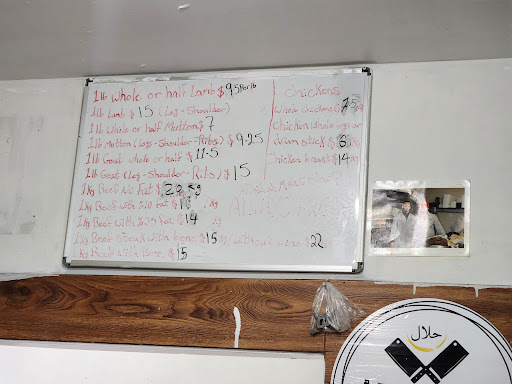 1lb Whole or half Lamb $ 9.5 Per lb
1lb Lamb $ 15 (Leg-Shoulder)
1lb Whole or half Mutton $ 7
1lb Mutton (Leg-Shoulder-Ribs) $ 9.25
1lb Goat whole or half $ 11.5
1lb Goat (Leg-Shoulder-Ribs) $ 15
1kg Beef No Fat $
1kg Beef with %10 fat $ 16 kg
1kg Beef with %20 fat $ 14 kg
1kg Beef Steak with bone $15 without bone $22
1kg Beef with bone $15
Chickens
Whole Chickens $
Chicken whole legs or
drum stick $
Chicken breast $ 14
حلال